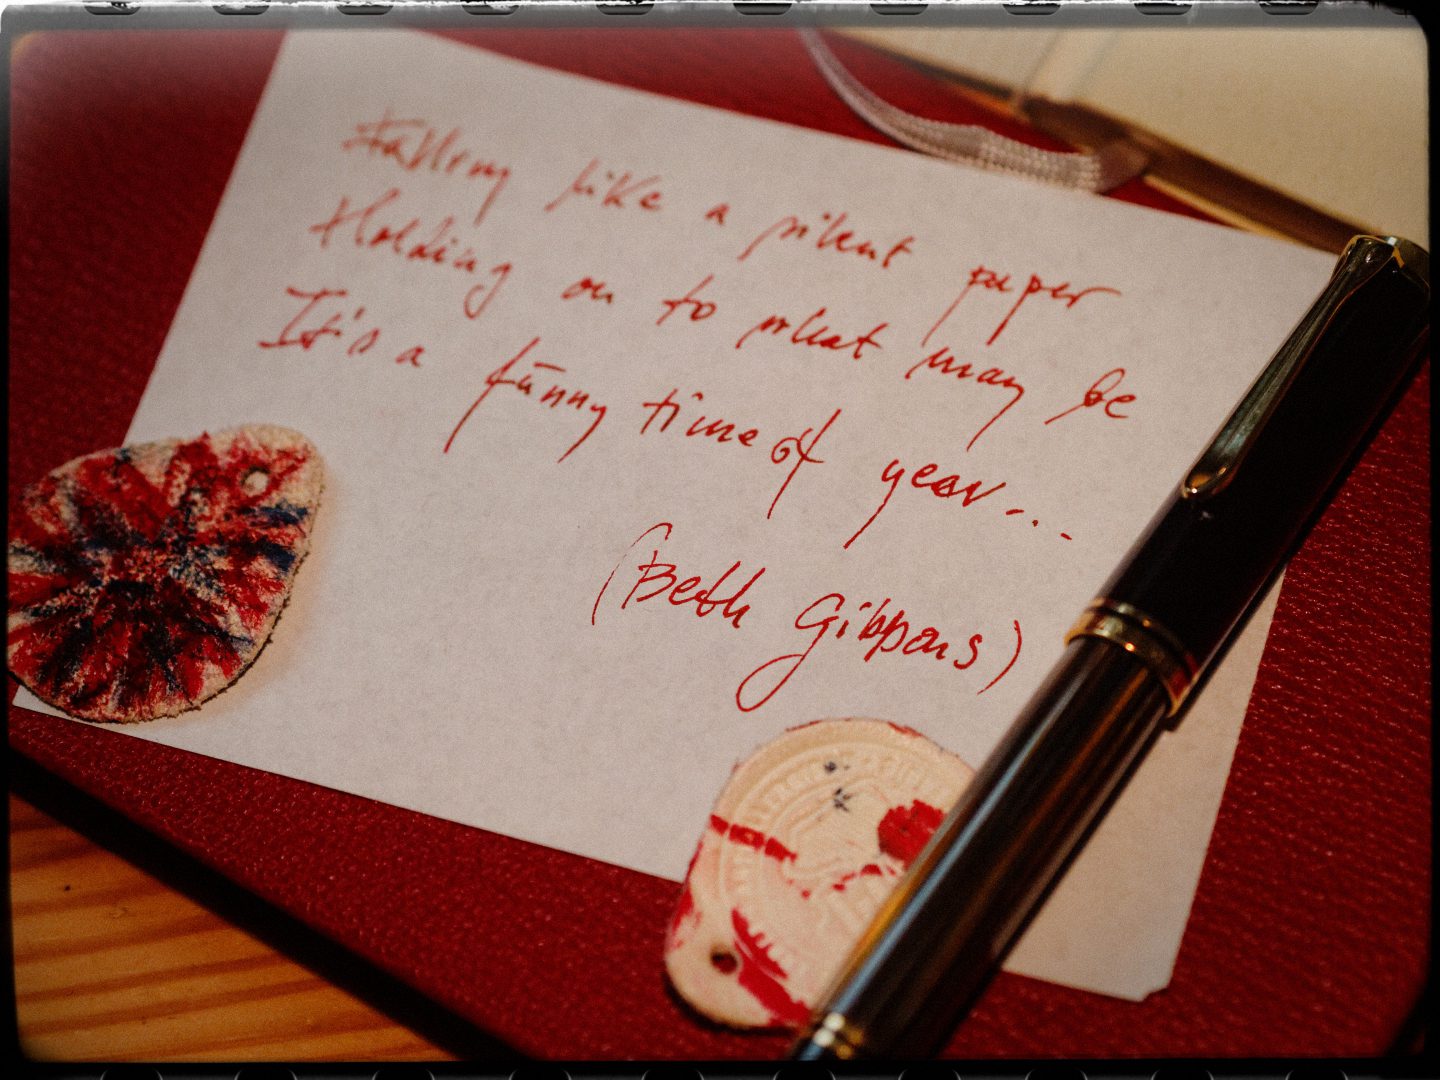 Falling like a silent paper
Holding on to what may be
It's a funny time of year...
(Beth Gibbons)